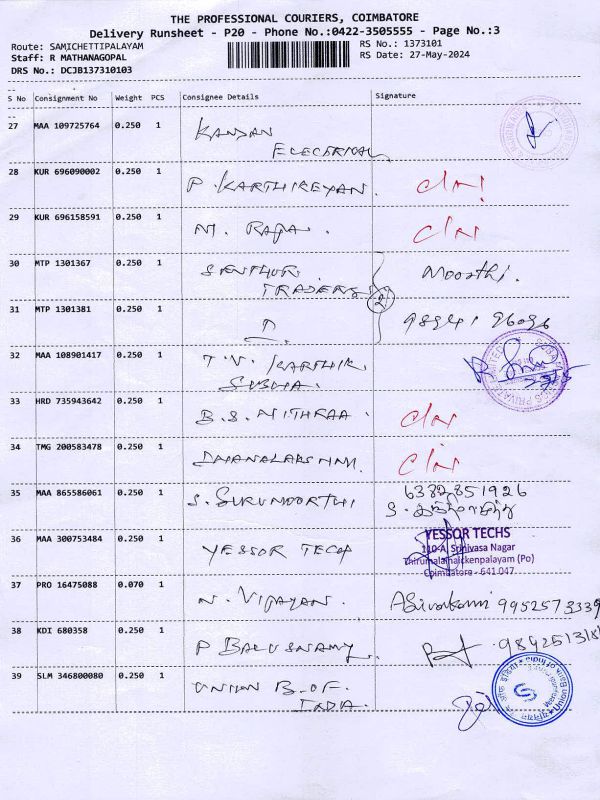 THE PROFESSIONAL COURIERS, COIMBATORE
Delivery Runsheet - P20 - Phone No.:0422-3505555 - Page No.:3
Route: SAMICHETTIPALAYAM
RS No.: 1373101
Staff: R MATHANAGOPAL
RS Date: 27-May-2024
DRS No.: DCJB137310103
S No Consignment No Weight PCS Consignee Details Signature
27 MAA 109725764 0.250 1 KANDAN
ELECTRICAL
28 KUR 696090002 0.250 1 P. KARTHIKEYAN.
29 KUR 696158591 0.250 1 M. RAJA.
30 MTP 1301367 0.250 1 SENTHUR Moorthi.
TRADERS 2
31 MTP 1301381 0.250 1
32 MAA 108901417 0.250 1 T.V. KARTHIK
SUBHA.
33 HRD 735943642 0.250 1 B.S. NITHRAA.
34 TMG 200583478 0.250 1 DHANALAKSHMI.
35 MAA 865586061 0.250 1 S. GURUMOORTHI 6382851926
36 MAA 300753484 0.250 1 YESSOR TECH
YESSOR TECHS
110-A, Srinivasa Nagar
Thirumalainaickenpalayam (Po)
Coimbatore - 641 047.
37 PRO 16475088 0.070 1 N. VIJAYAN. 9952573339
38 KDI 680358 0.250 1 P BALUSWAMY.
39 SLM 346800080 0.250 1 UNION B.OF.
INDIA.
Union Bank of India